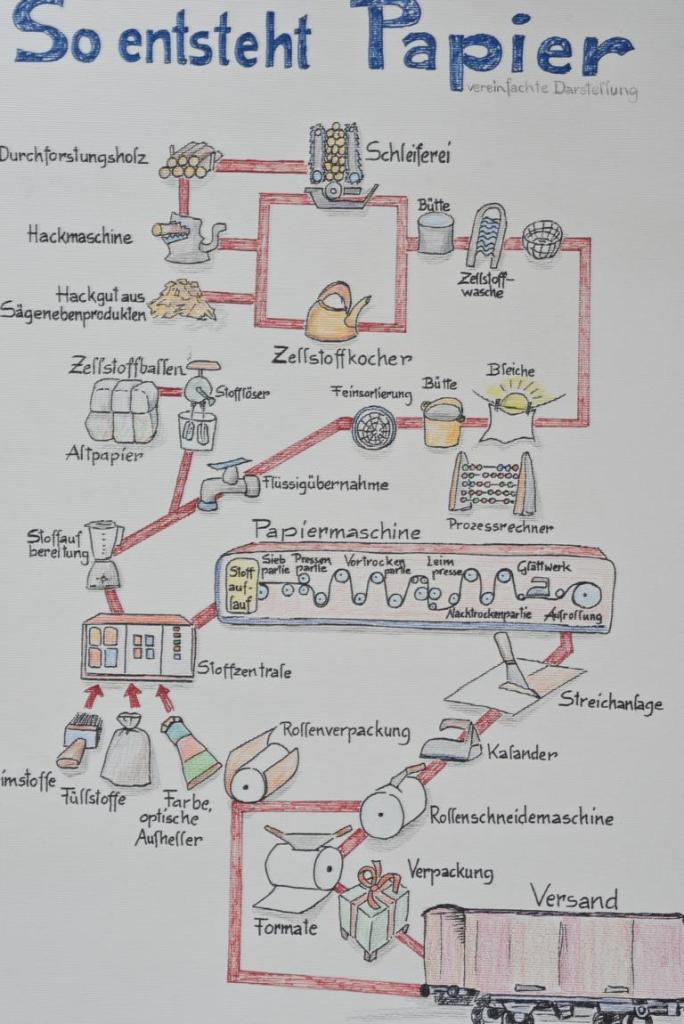 So entsteht Papier
vereinfachte Darstellung
Durchforstungsholz
Schleiferei
Hackmaschine
Bütte
Zellstoff-
wäsche
Hackgut aus
Sägenebenprodukten
Zellstoffkocher
Zellstoffballen
Stofflöser
Altpapier
Feinsortierung
Bütte
Bleiche
Flüssigübernahme
Prozessrechner
Stoffauf
bereitung
Papiermaschine
Stoff
auf-
lauf
Sieb
partie
Pressen
partie
Vortrocken
partie
Leim
presse
Nachtrockenpartie
Glättwerk
Aufrollung
Stoffzentrale
Streichanlage
imstoffe
Füllstoffe
Farbe,
optische
Aufheller
Rollenverpackung
Kalander
Rollenschneidemaschine
Formate
Verpackung
Versand